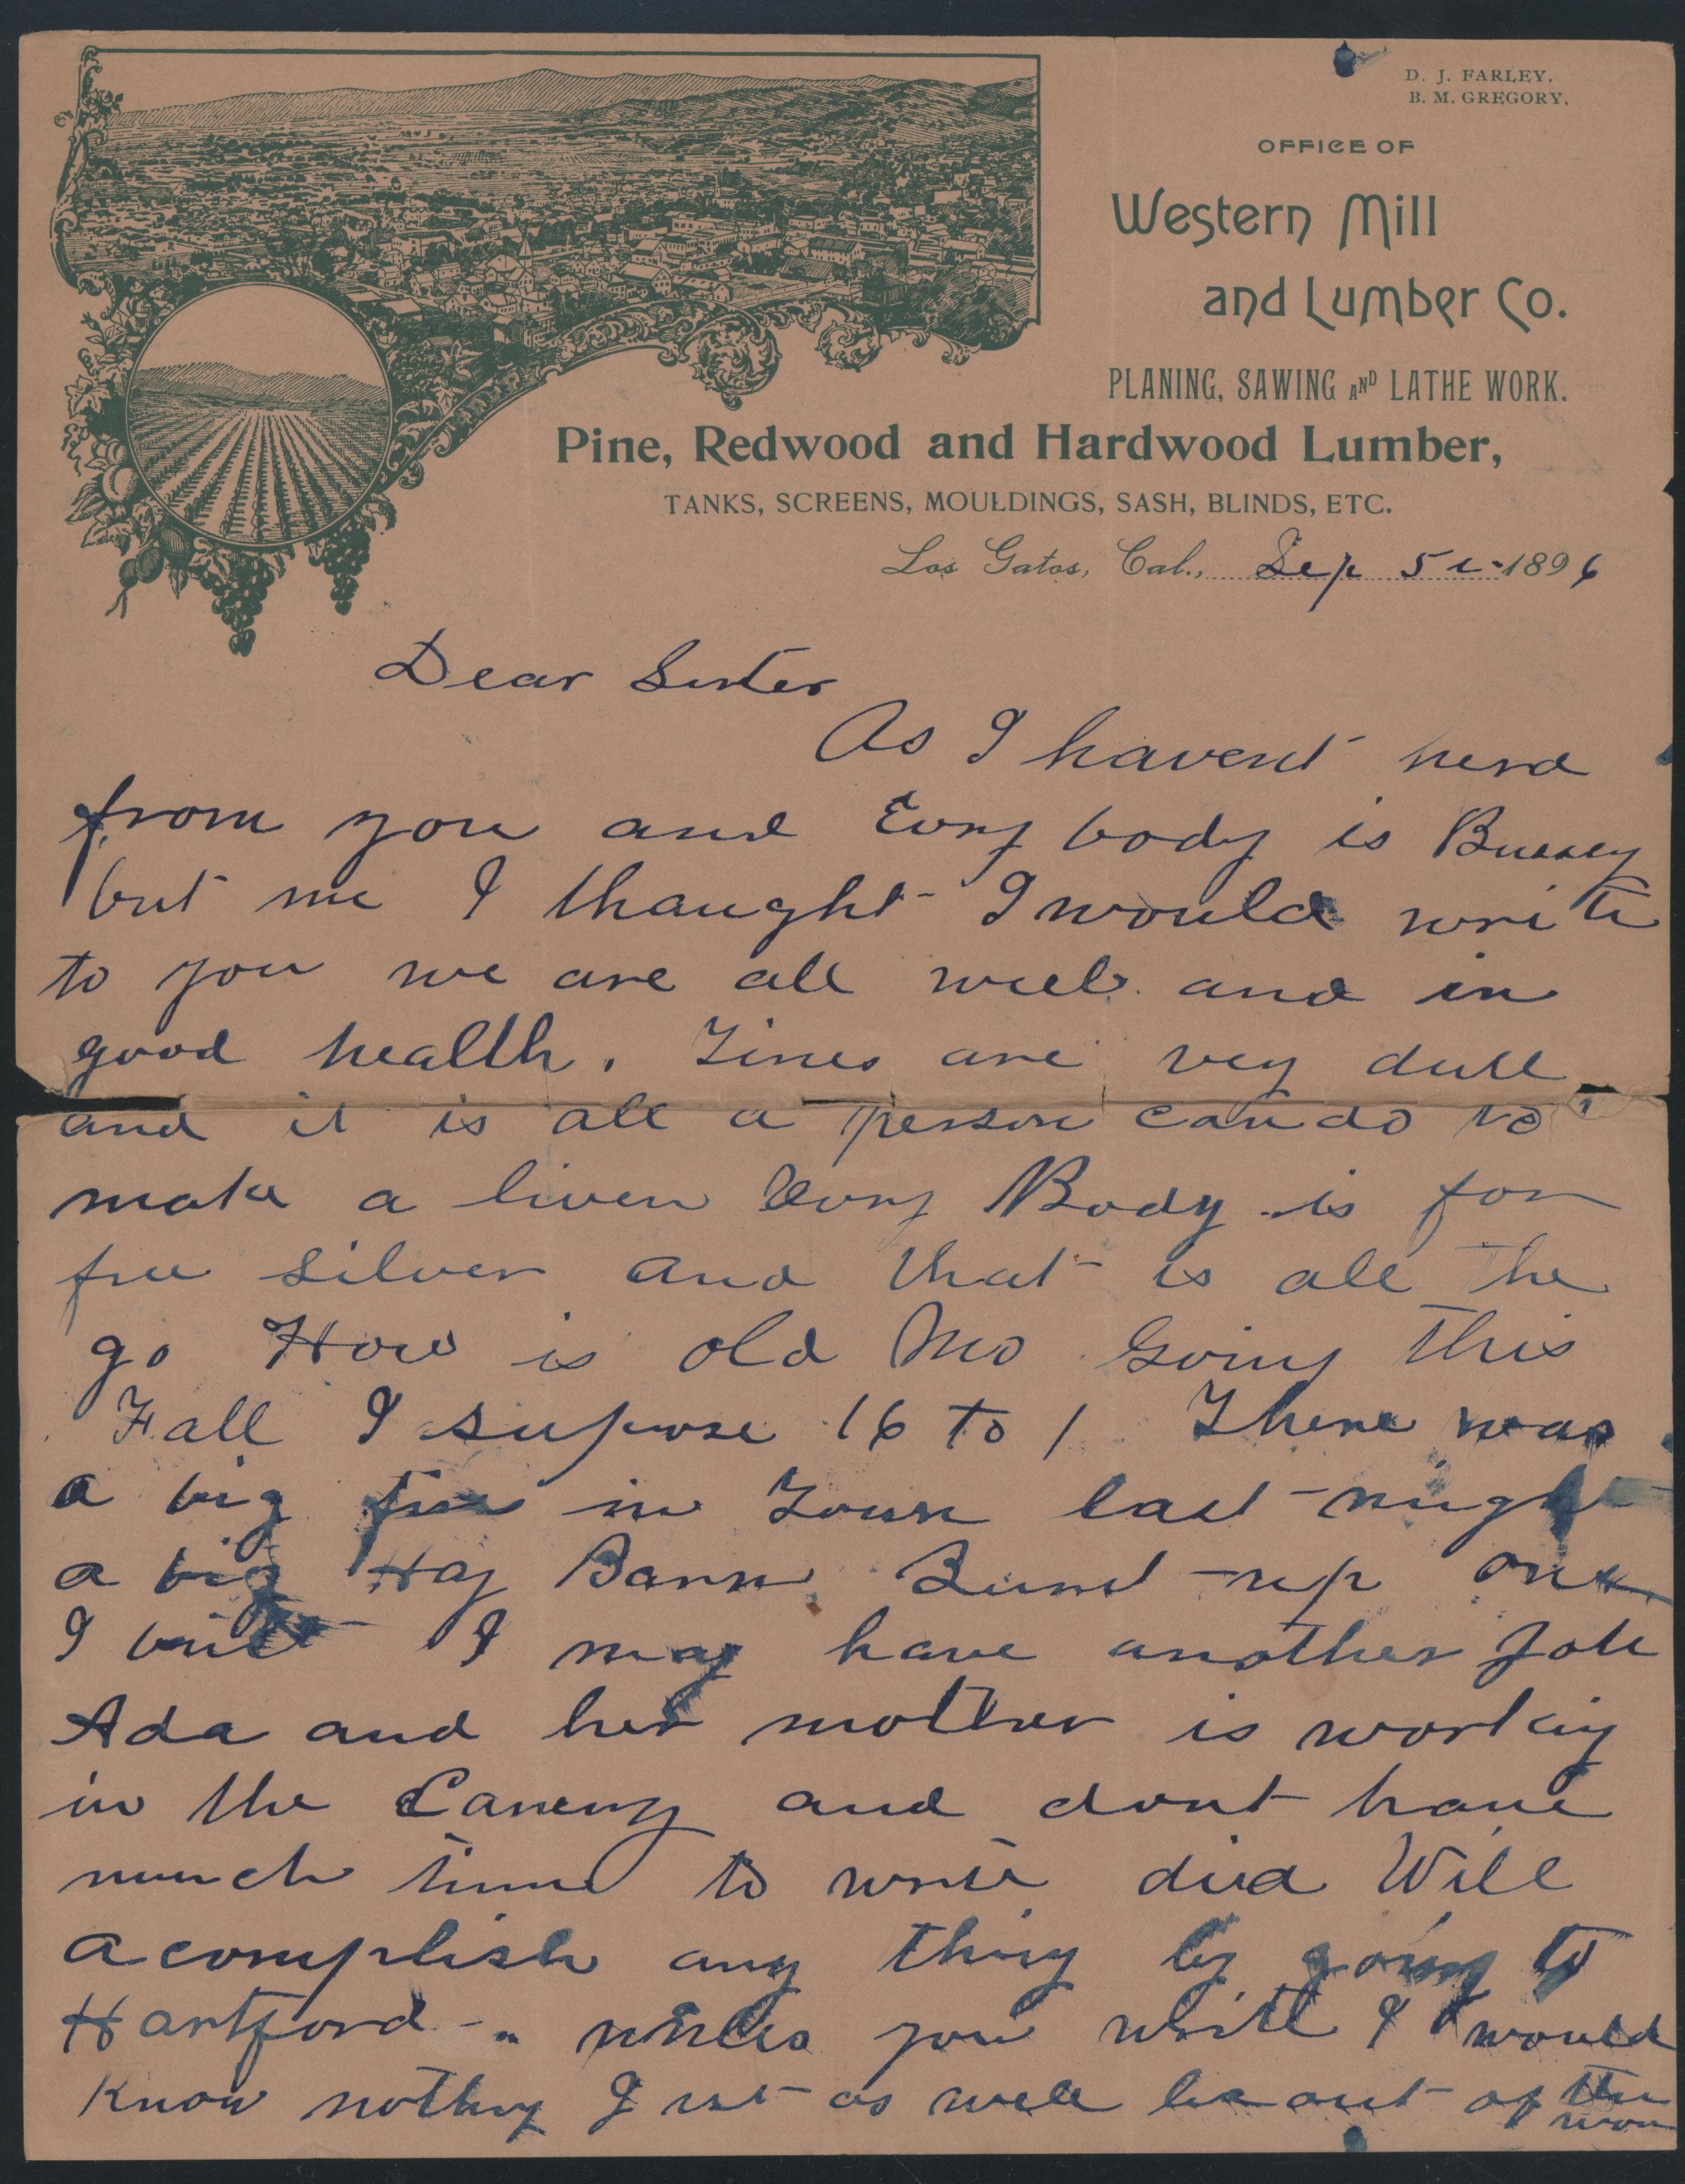 D. J. FARLEY.
B. M. GREGORY.
OFFICE OF
Western Mill
and Lumber Co.
PLANING, SAWING AND LATHE WORK.
Pine, Redwood and Hardwood Lumber,
TANKS, SCREENS, MOULDINGS, SASH, BLINDS, ETC.
Los Gatos, Cal., Sep 5 1896
Dear Sister
As I havent herd
from you and Evry body is Bussey
but me I thaught I would write
to you we are all well and in
good health. Times are vey dull
and it is all a person can do to
make a liven Evry Body is for
free silver and that is all the
go How is old Mo Going this
Fall I supose 16 to 1 There was
a big fire in Town last night
a big Hay Barn Burnd up one
I built I may have another Job
Ada and her mother is workig
in the Canery and dont have
much time to write did Will
acomplish any thing by going to
Hartford unless you write I would
Know nothing Just as well be out of the